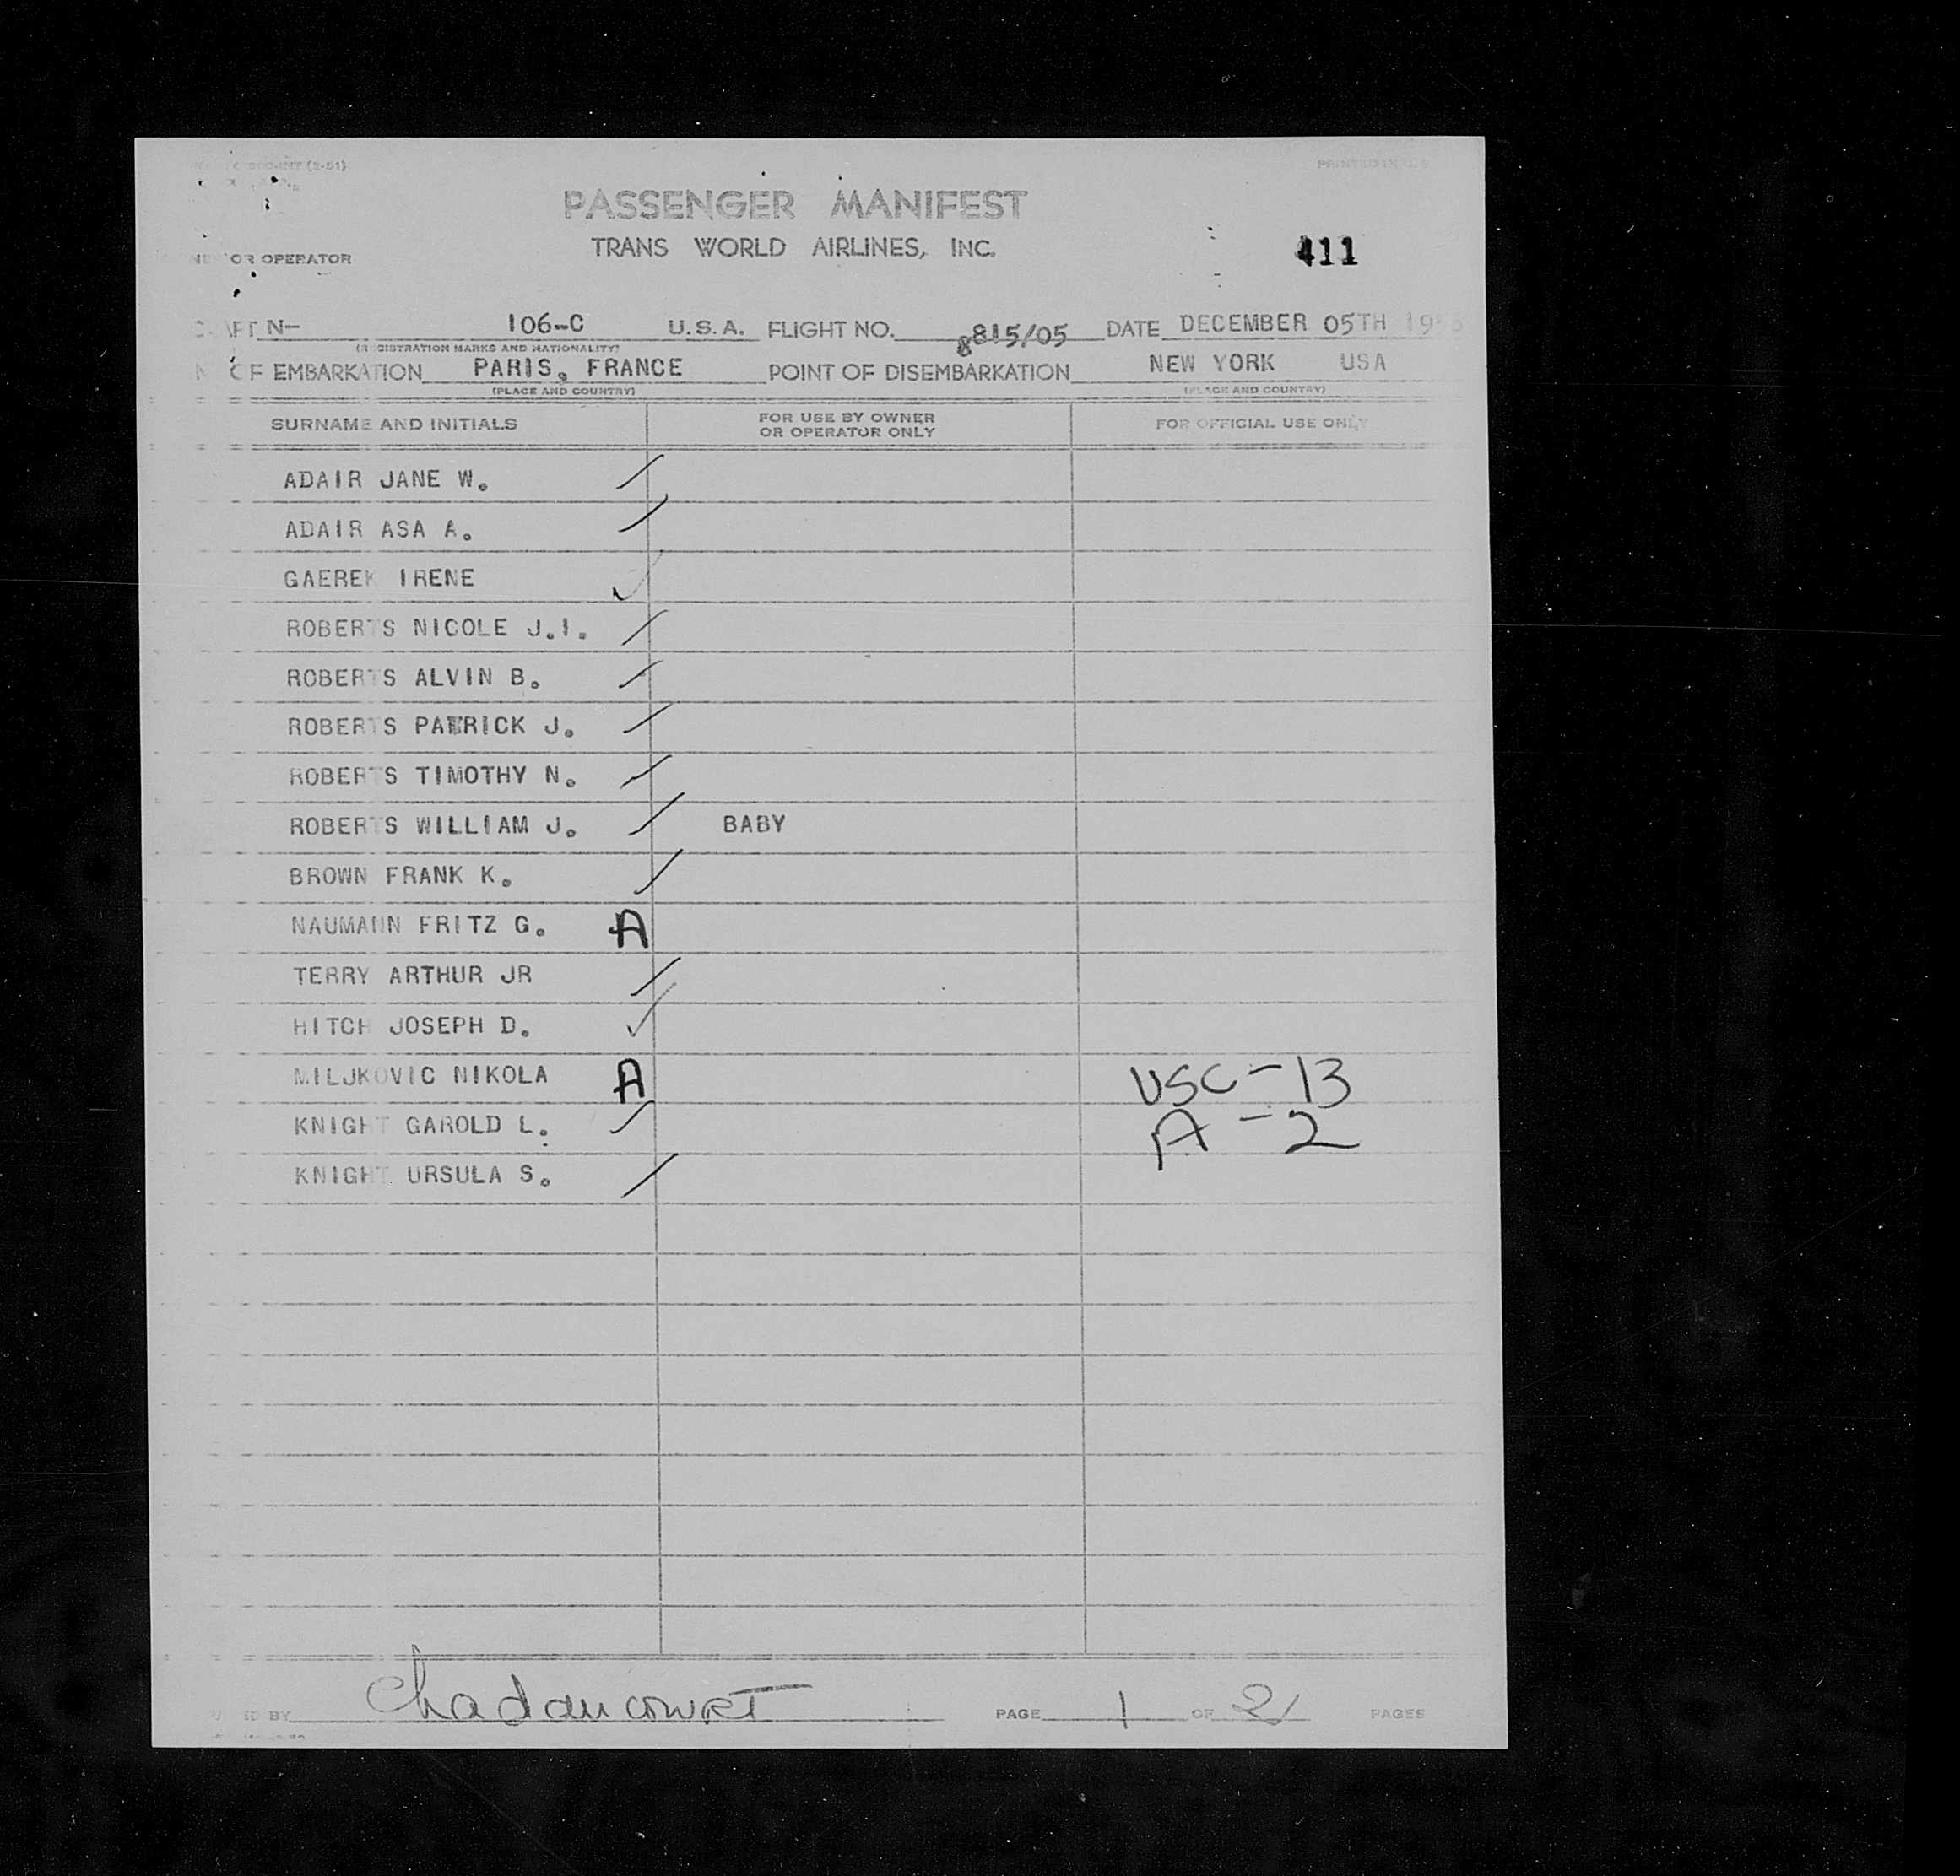 (2-51)
PRINTED IN U S
PASSENGER MANIFEST
TRANS WORLD AIRLINES, INC.
411
OR OPERATOR
N— 106-C U.S.A. FLIGHT NO. 8815/05 DATE DECEMBER 05TH
(REGISTRATION MARKS AND NATIONALITY)
OF EMBARKATION PARIS, FRANCE POINT OF DISEMBARKATION NEW YORK USA
(PLACE AND COUNTRY) (PLACE AND COUNTRY)
SURNAME AND INITIALS FOR USE BY OWNER OR OPERATOR ONLY FOR OFFICIAL USE ONLY
ADAIR JANE W.
ADAIR ASA A.
GAEREK IRENE
ROBERTS NICOLE J.I.
ROBERTS ALVIN B.
ROBERTS PATRICK J.
ROBERTS TIMOTHY N.
ROBERTS WILLIAM J. BABY
BROWN FRANK K.
NAUMANN FRITZ G. A
TERRY ARTHUR JR
HITCH JOSEPH D.
MILJKOVIC NIKOLA A USC-13
KNIGHT GAROLD L. A-2
KNIGHT URSULA S.
BY Chadancourt PAGE 1 OF 2 PAGES